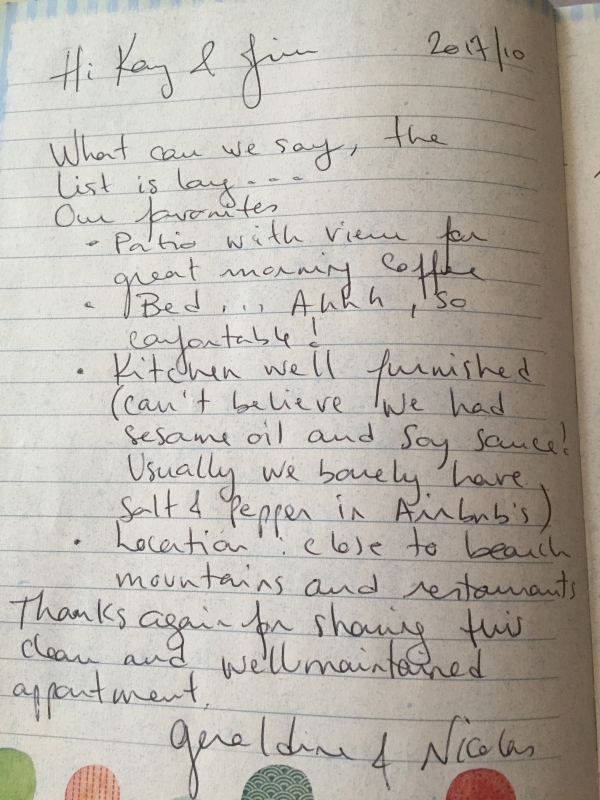 Hi Kay & Jim 2017/10
What can we say, the
list is long...
Our favorites
• Patio with view for
great morning coffee
• Bed... Ahhh, so
confortable!
• Kitchen well furnished
(can't believe we had
sesame oil and Soy sauce!
Usually we barely have
Salt & Pepper in Airbnb's)
• Location: close to beach
mountains and restaurants
Thanks again for sharing this
clean and well maintained
appartment.
Geraldine & Nicolas